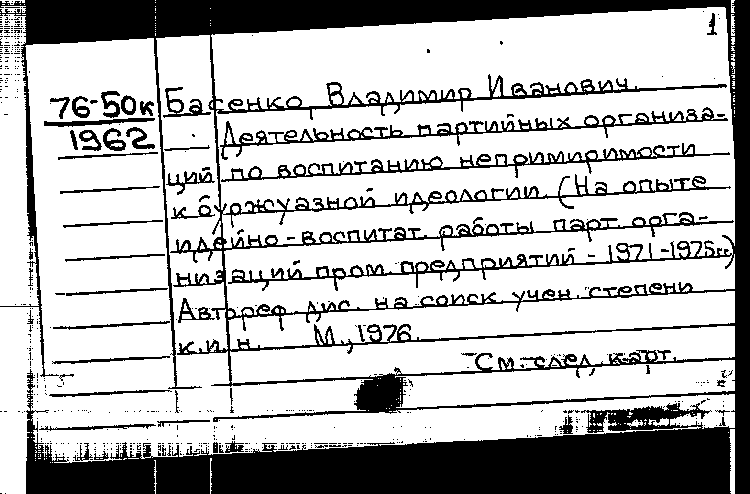 1
76-50к Басенко, Владимир Иванович.
1962 Деятельность партийных организа-
ций по воспитанию непримиримости
к буржуазной идеологии. (На опыте
идейно-воспитат. работы парт. орга-
низаций пром. предприятий - 1971-1975гг.)
Автореф. дис. на соиск. учен. степени
к.и.н. М., 1976.
См. след. карт.